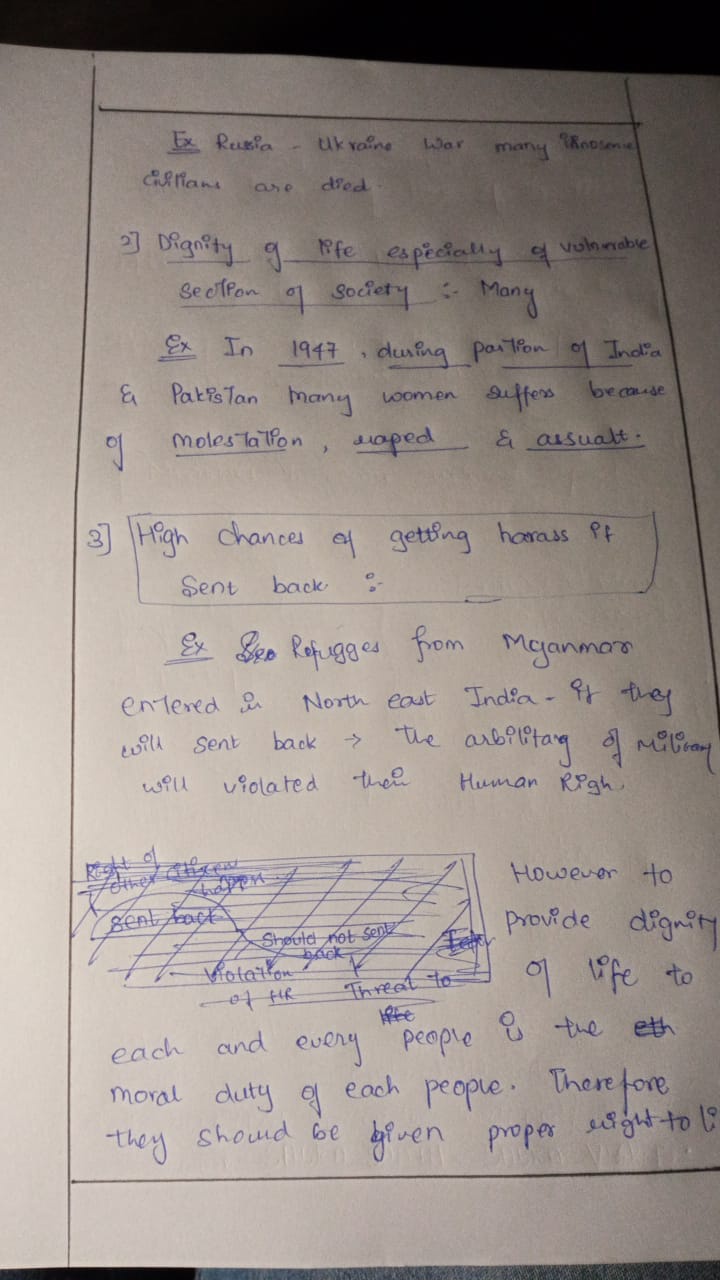 Ex Russia - Ukraine War many
civilians are died.
2] Dignity of life especially of vulnerable
section of society :- Many
Ex In 1947, during partion of India
& Pakistan many women suffers because
of molestation, raped & assualt.
3] High chances of getting harass if
Sent back :-
Ex Refugges from Myanmar
entered in North east India - if they
will sent back → the arbilitary of Military
will violated their Human Righ.
Right of
other citizen
happen
sent back
Should not sent
back
Violation
of HR
Threat to
life
However to
provide dignity
of life to
each and every people is the eth
moral duty of each people. Therefore
they should be given proper right to li